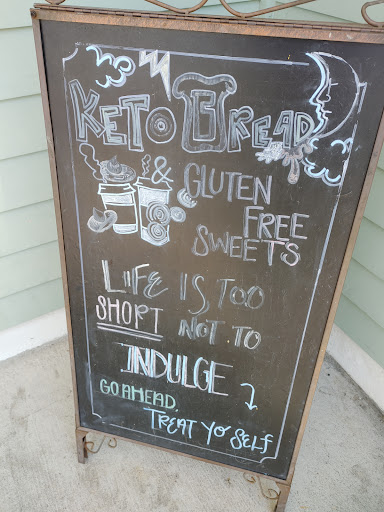 KETO BREAD
& GLUTEN
FREE
SWEETS
LIFE IS TOO
SHORT NOT TO
INDULGE
GO AHEAD.
TREAT YO SELF